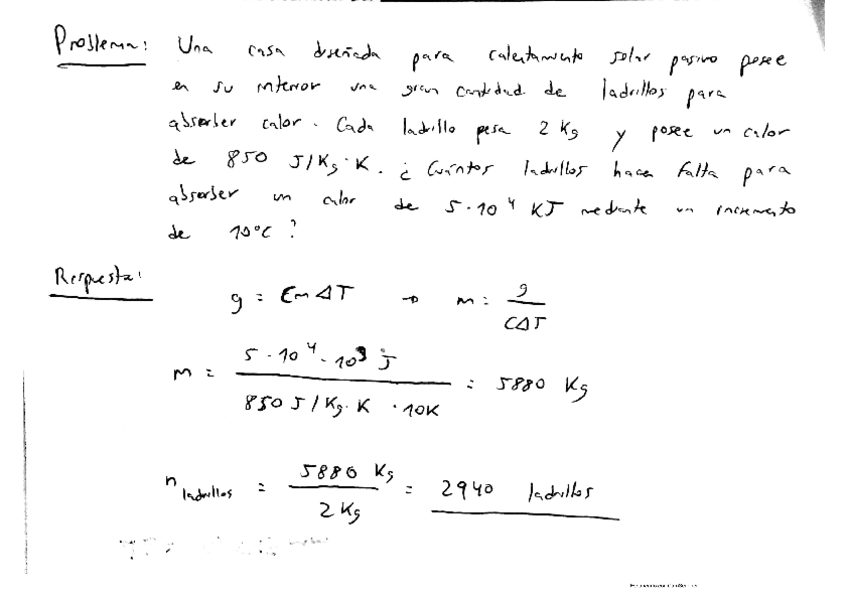 Problema: Una casa diseñada para calentamiento solar pasivo posee
en su interior una gran cantidad de ladrillos para
absorber calor. Cada ladrillo pesa 2 Kg y posee un calor
de 850 J/Kg·K. ¿Cuántos ladrillos hacen falta para
absorber un calor de 5·10⁴ KJ mediante un incremento
de 10°C?
Respuesta:
q = CmΔT → m = q/CΔT
m = 5·10⁴·10³ J / 850 J/Kg·K · 10K = 5880 Kg
n ladrillos = 5880 Kg / 2 Kg = 2940 ladrillos